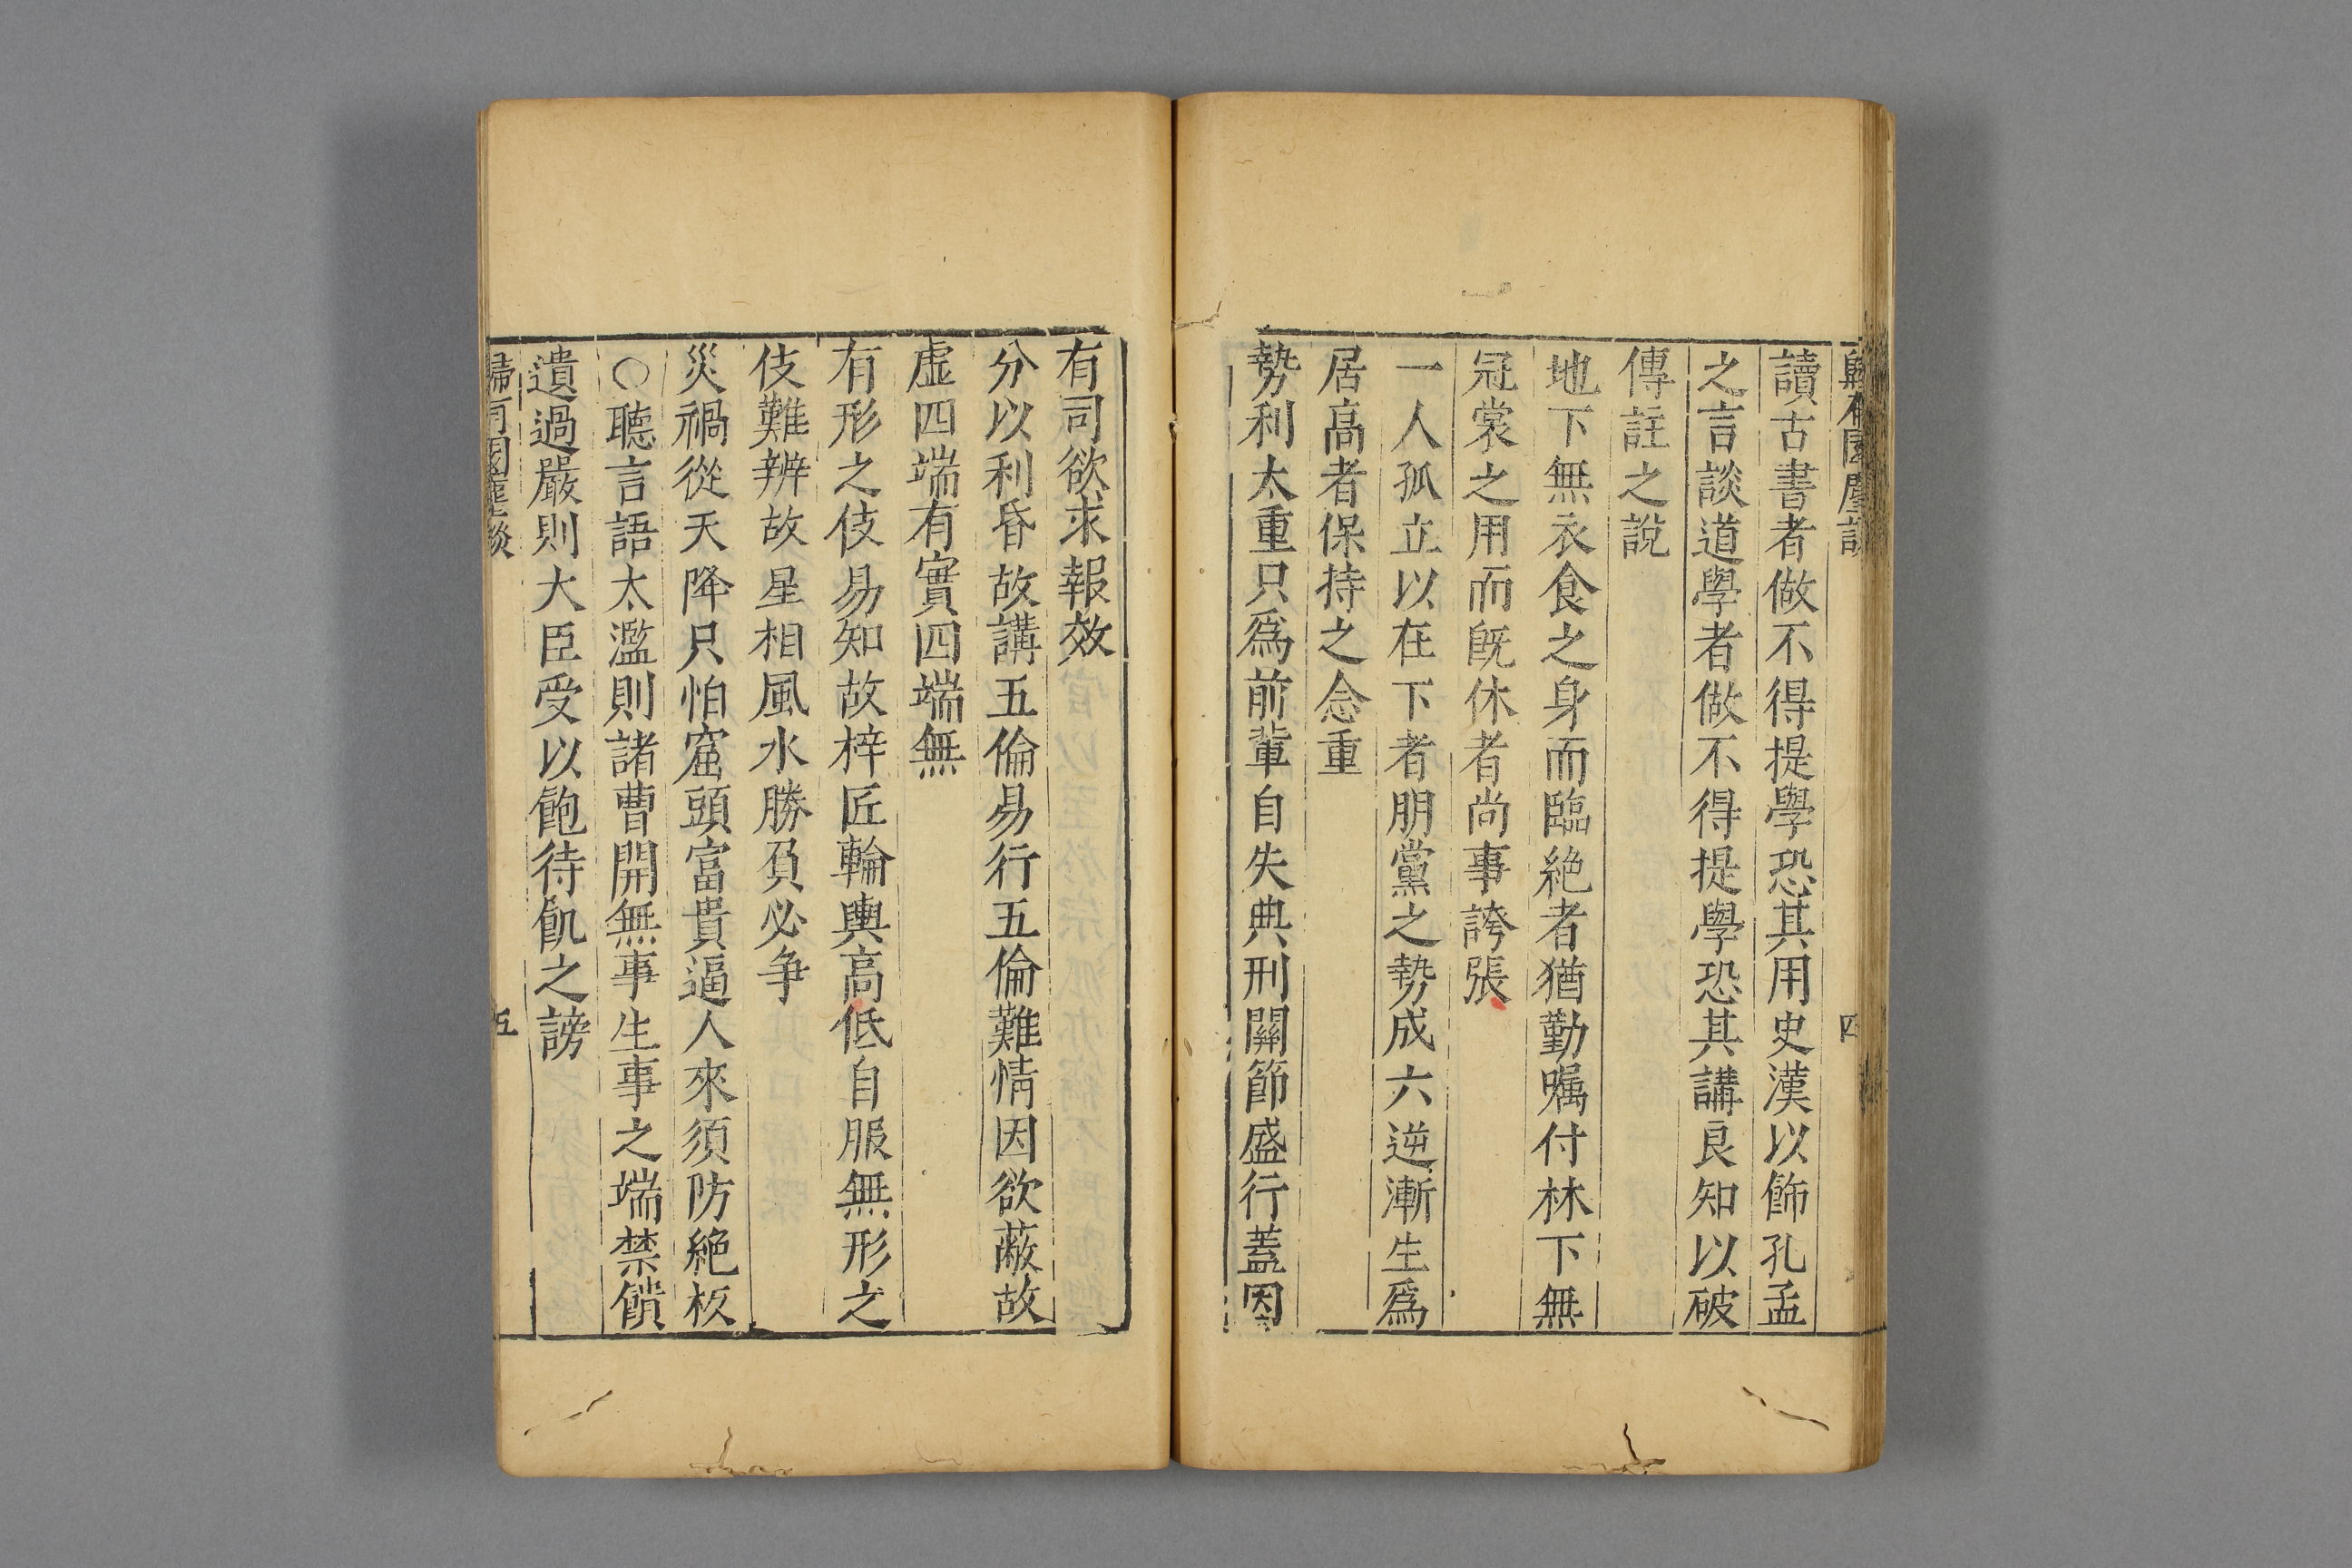 歸有園麈談
四
讀古書者做不得提學恐其用史漢以飾孔孟
之言談道學者做不得提學恐其講良知以破
傳註之說
地下無衣食之身而臨絶者猶勤囑付林下無
冠裳之用而旣休者尚事誇張
一人孤立以在下者朋黨之勢成六逆漸生爲
居高者保持之念重
勢利太重只爲前輩自失典刑關節盛行蓋因
有司欲求報效
分以利昏故講五倫易行五倫難情因欲蔽故
虛四端有實四端無
有形之伎易知故梓匠輪輿高低自服無形之
伎難辨故星相風水勝負必争
災禍從天降只怕窟頭富貴逼人來須防絶板
○聽言語太濫則諸曹開無事生事之端禁饋
遺過嚴則大臣受以飽待飢之謗
歸有園麈談
五